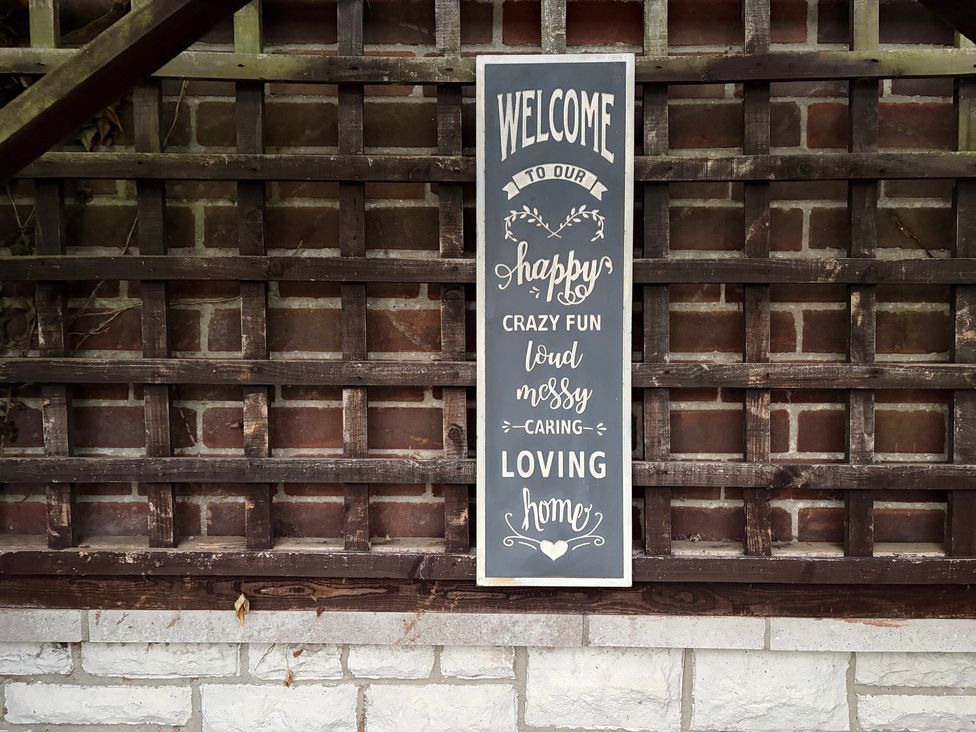 WELCOME
TO OUR
happy
CRAZY FUN
loud
messy
CARING
LOVING
home